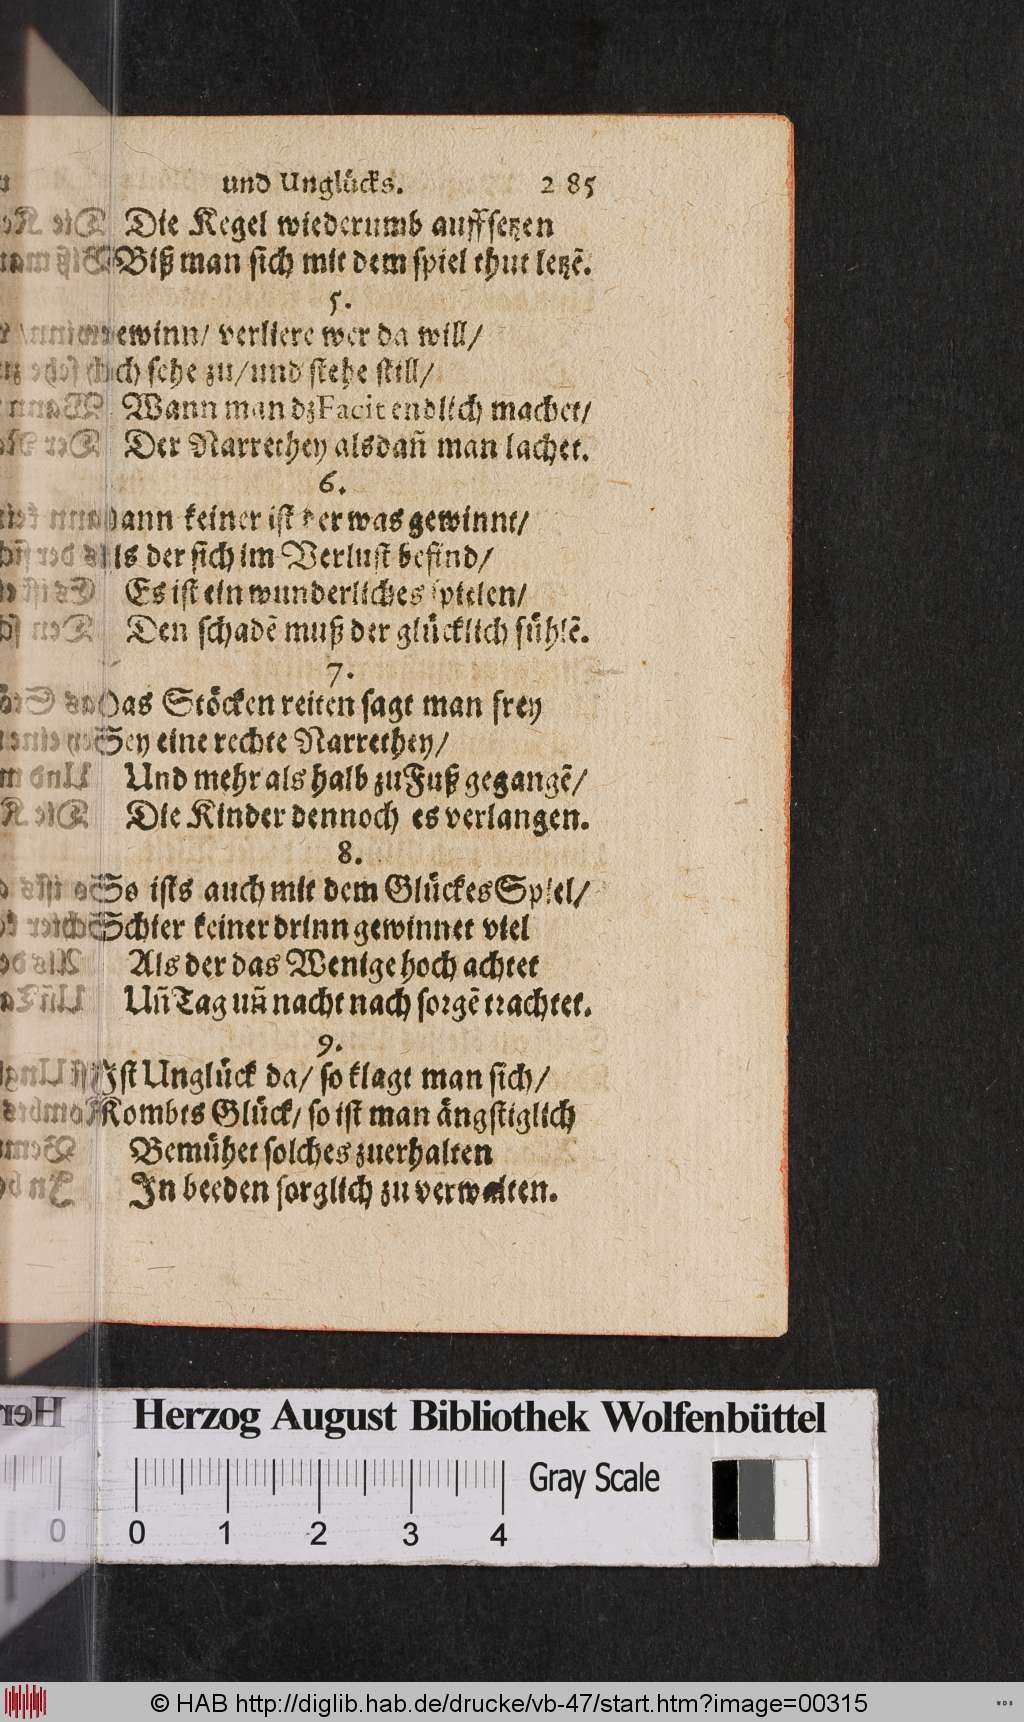 und Unglücks. 285
Die Kegel wiederumb auffsetzen
Biß man sich mit dem spiel thut letzẽ.
5.
ewinn/ verliere wer da will/
ch sehe zu/ und stehe still/
Wann man dz Facit endlich machet/
Der Narrethey alsdañ man lachet.
6.
ann keiner ist der was gewinnt/
ls der sich im Verlust befind/
Es ist ein wunderliches spielen/
Den schadẽ muß der glücklich fühlẽ.
7.
as Stöcken reiten sagt man frey
Sey eine rechte Narrethey/
Und mehr als halb zu Fuß gegangẽ/
Die Kinder dennoch es verlangen.
8.
So ists auch mit dem Glückes Spiel/
Schier keiner drinn gewinnet viel
Als der das Wenige hoch achtet
Uñ Tag uñ nacht nach sorgẽ trachtet.
9.
Ist Unglück da/ so klagt man sich/
Kombts Glück/ so ist man ängstiglich
Bemühet solches zuerhalten
In beeden sorglich zu verwalten.
Herzog August Bibliothek Wolfenbüttel
Gray Scale
0 1 2 3 4
© HAB http://diglib.hab.de/drucke/vb-47/start.htm?image=00315